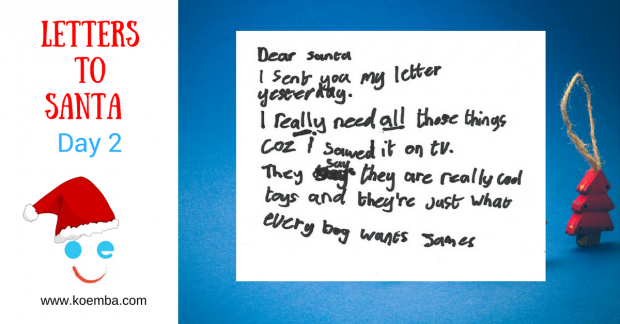 LETTERS
TO
SANTA
Day 2
www.koemba.com
Dear santa
I sent you my letter
yesterday.
I really need all those things
coz i sawed it on tv.
They say they are really cool
toys and they're just what
every boy wants James